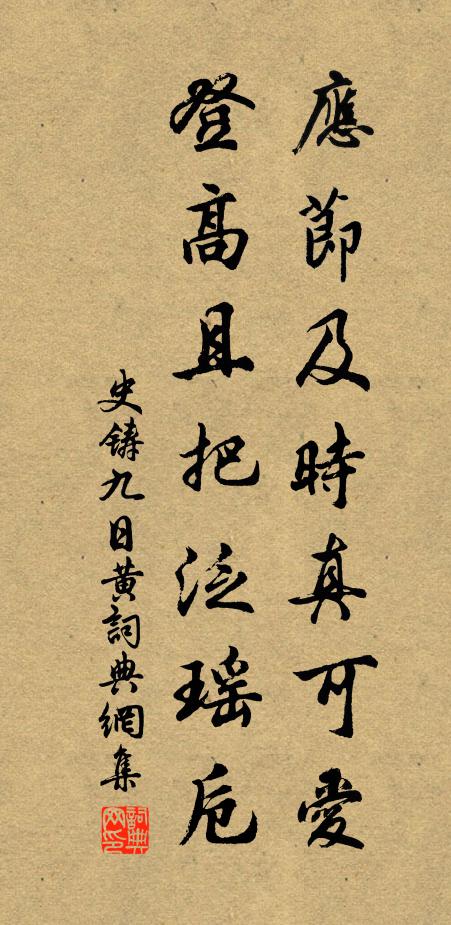 應節及時真可愛
登高且把泛瑤卮
史鑄九日黃詞典網集
詞典网印